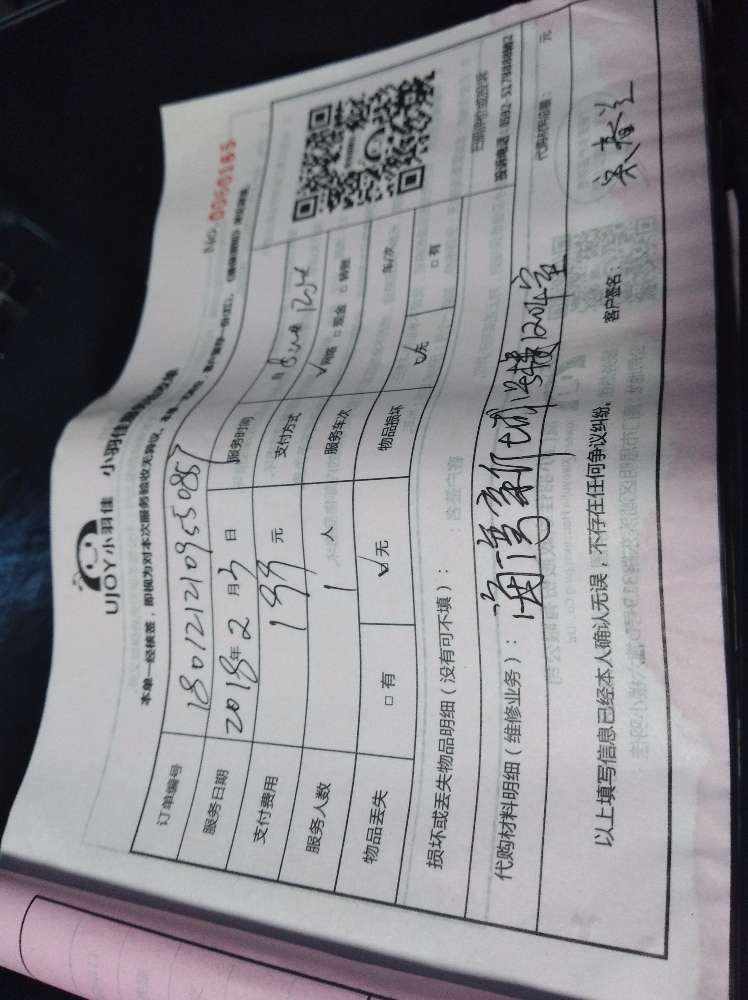 UJOY小羽佳 小羽佳
No.0060165
本单一经核签，即视为对本次服务验收无异议。
订单编号 180121210955085
服务日期 2018年2月3日 服务时间
支付费用 199元 支付方式 ✓网络 □现金 □转账
服务人数 1人 服务车次 车/次
物品丢失 □有 ✓无 物品损坏 ✓无 □有
扫描评价或投诉
投诉电话：0592-5178888转2
损坏或丢失物品明细（没有可不填）：
代购材料明细（维修业务）： 海湾新城 号楼1204室 代购材料总额： 元
以上填写信息已经本人确认无误，不存在任何争议纠纷。
客户签名：